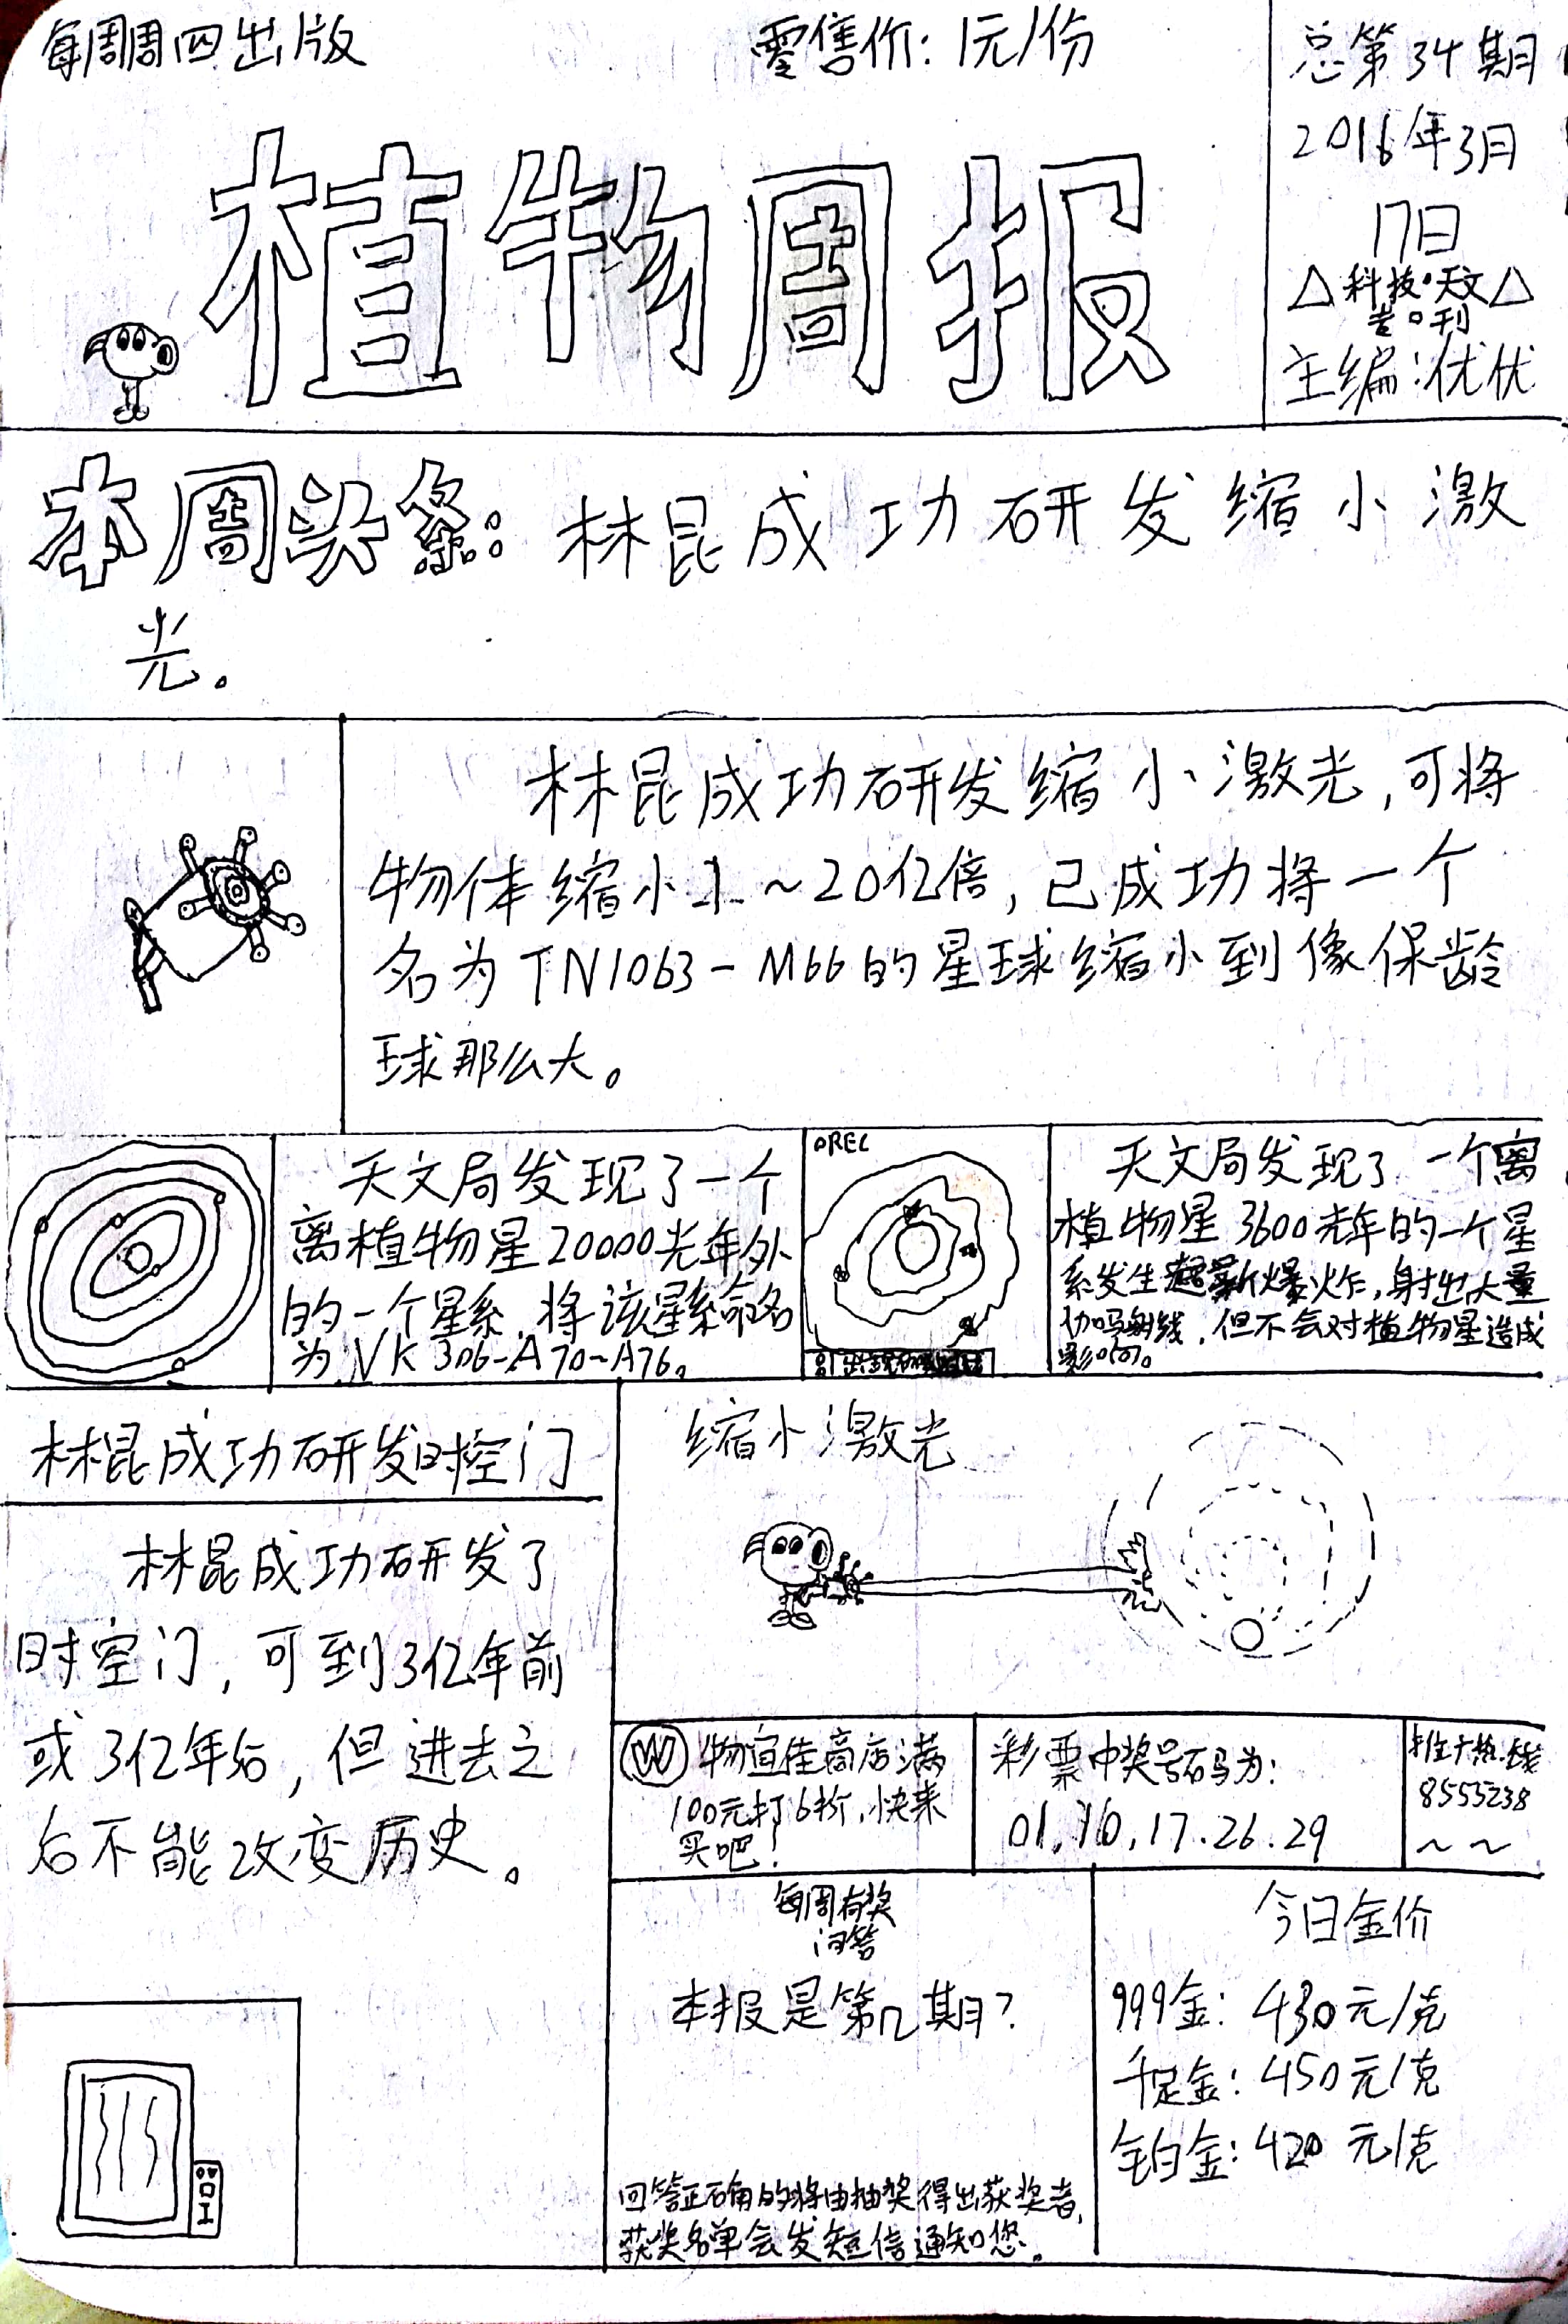 每周周四出版
零售价:1元/份
总第34期
2016年3月
17日
△科技·天文△
专刊
主编:优优
植物周报
本周头条:林昆成功研发缩小激
光。
林昆成功研发缩小激光,可将
物体缩小1~20亿倍,已成功将一个
名为TN1063-M66的星球缩小到像保龄
球那么大。
天文局发现了一个
离植物星20000光年外
的一个星系,将该星系命名
为VK306-A70~A76。
REC
天文局发现了一个离
植物星3600光年的一个星
系发生超新爆炸,射出大量
伽吗射线,但不会对植物星造成
影响。
林昆成功研发时空门
林昆成功研发了
时空门,可到3亿年前
或3亿年后,但进去之
后不能改变历史。
缩小激光
W 物宜佳商店满
100元打6折,快来
买吧!
彩票中奖号码为:
01.10.17.26.29
热线
8555238
~~
每周有奖
问答
本报是第几期?
回答正确的将由抽奖得出获奖者,
获奖名单会发短信通知您。
今日金价
999金:430元/克
千足金:450元/克
铂金:420元/克